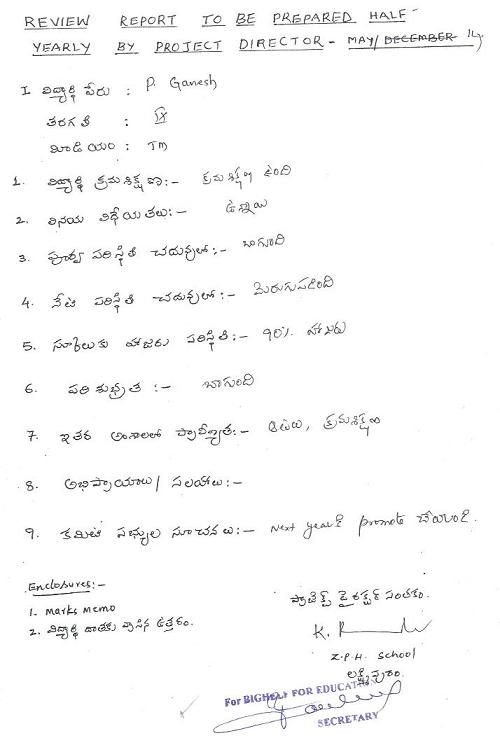 REVIEW REPORT TO BE PREPARED HALF
YEARLY BY PROJECT DIRECTOR - MAY/ DECEMBER 14.
I విద్యార్థి పేరు : P. Ganesh
తరగతి : IX
మీడియం : TM
1. విద్యార్థి క్రమశిక్షణ:- క్రమశిక్షణ ఉంది
2. వినయ విధేయతలు:- ఉన్నాయి
3. పూర్వ పరిస్థితి చదువులో:- బాగుంది
4. నేటి పరిస్థితి చదువులో:- మెరుగుపడింది
5. స్కూలుకు హాజరు పరిస్థితి:- 90% హాజరు
6. పరిశుభ్రత :- బాగుంది
7. ఇతర అంశాలలో ప్రావీణ్యత:- ఆటలు, క్రమశిక్షణ
8. అభిప్రాయాలు/ సలహాలు:-
9. కమిటీ సభ్యుల సూచనలు:- Next yearకి promote చేయండి.
Enclosures:-
1. Marks Memo
2. విద్యార్థి దాతకు వ్రాసిన ఉత్తరం.
ప్రాజెక్ట్ డైరక్టర్ సంతకం.
K.
Z.P.H. School
లక్ష్మీపురం.
For BIGHELP FOR EDUCATION
SECRETARY